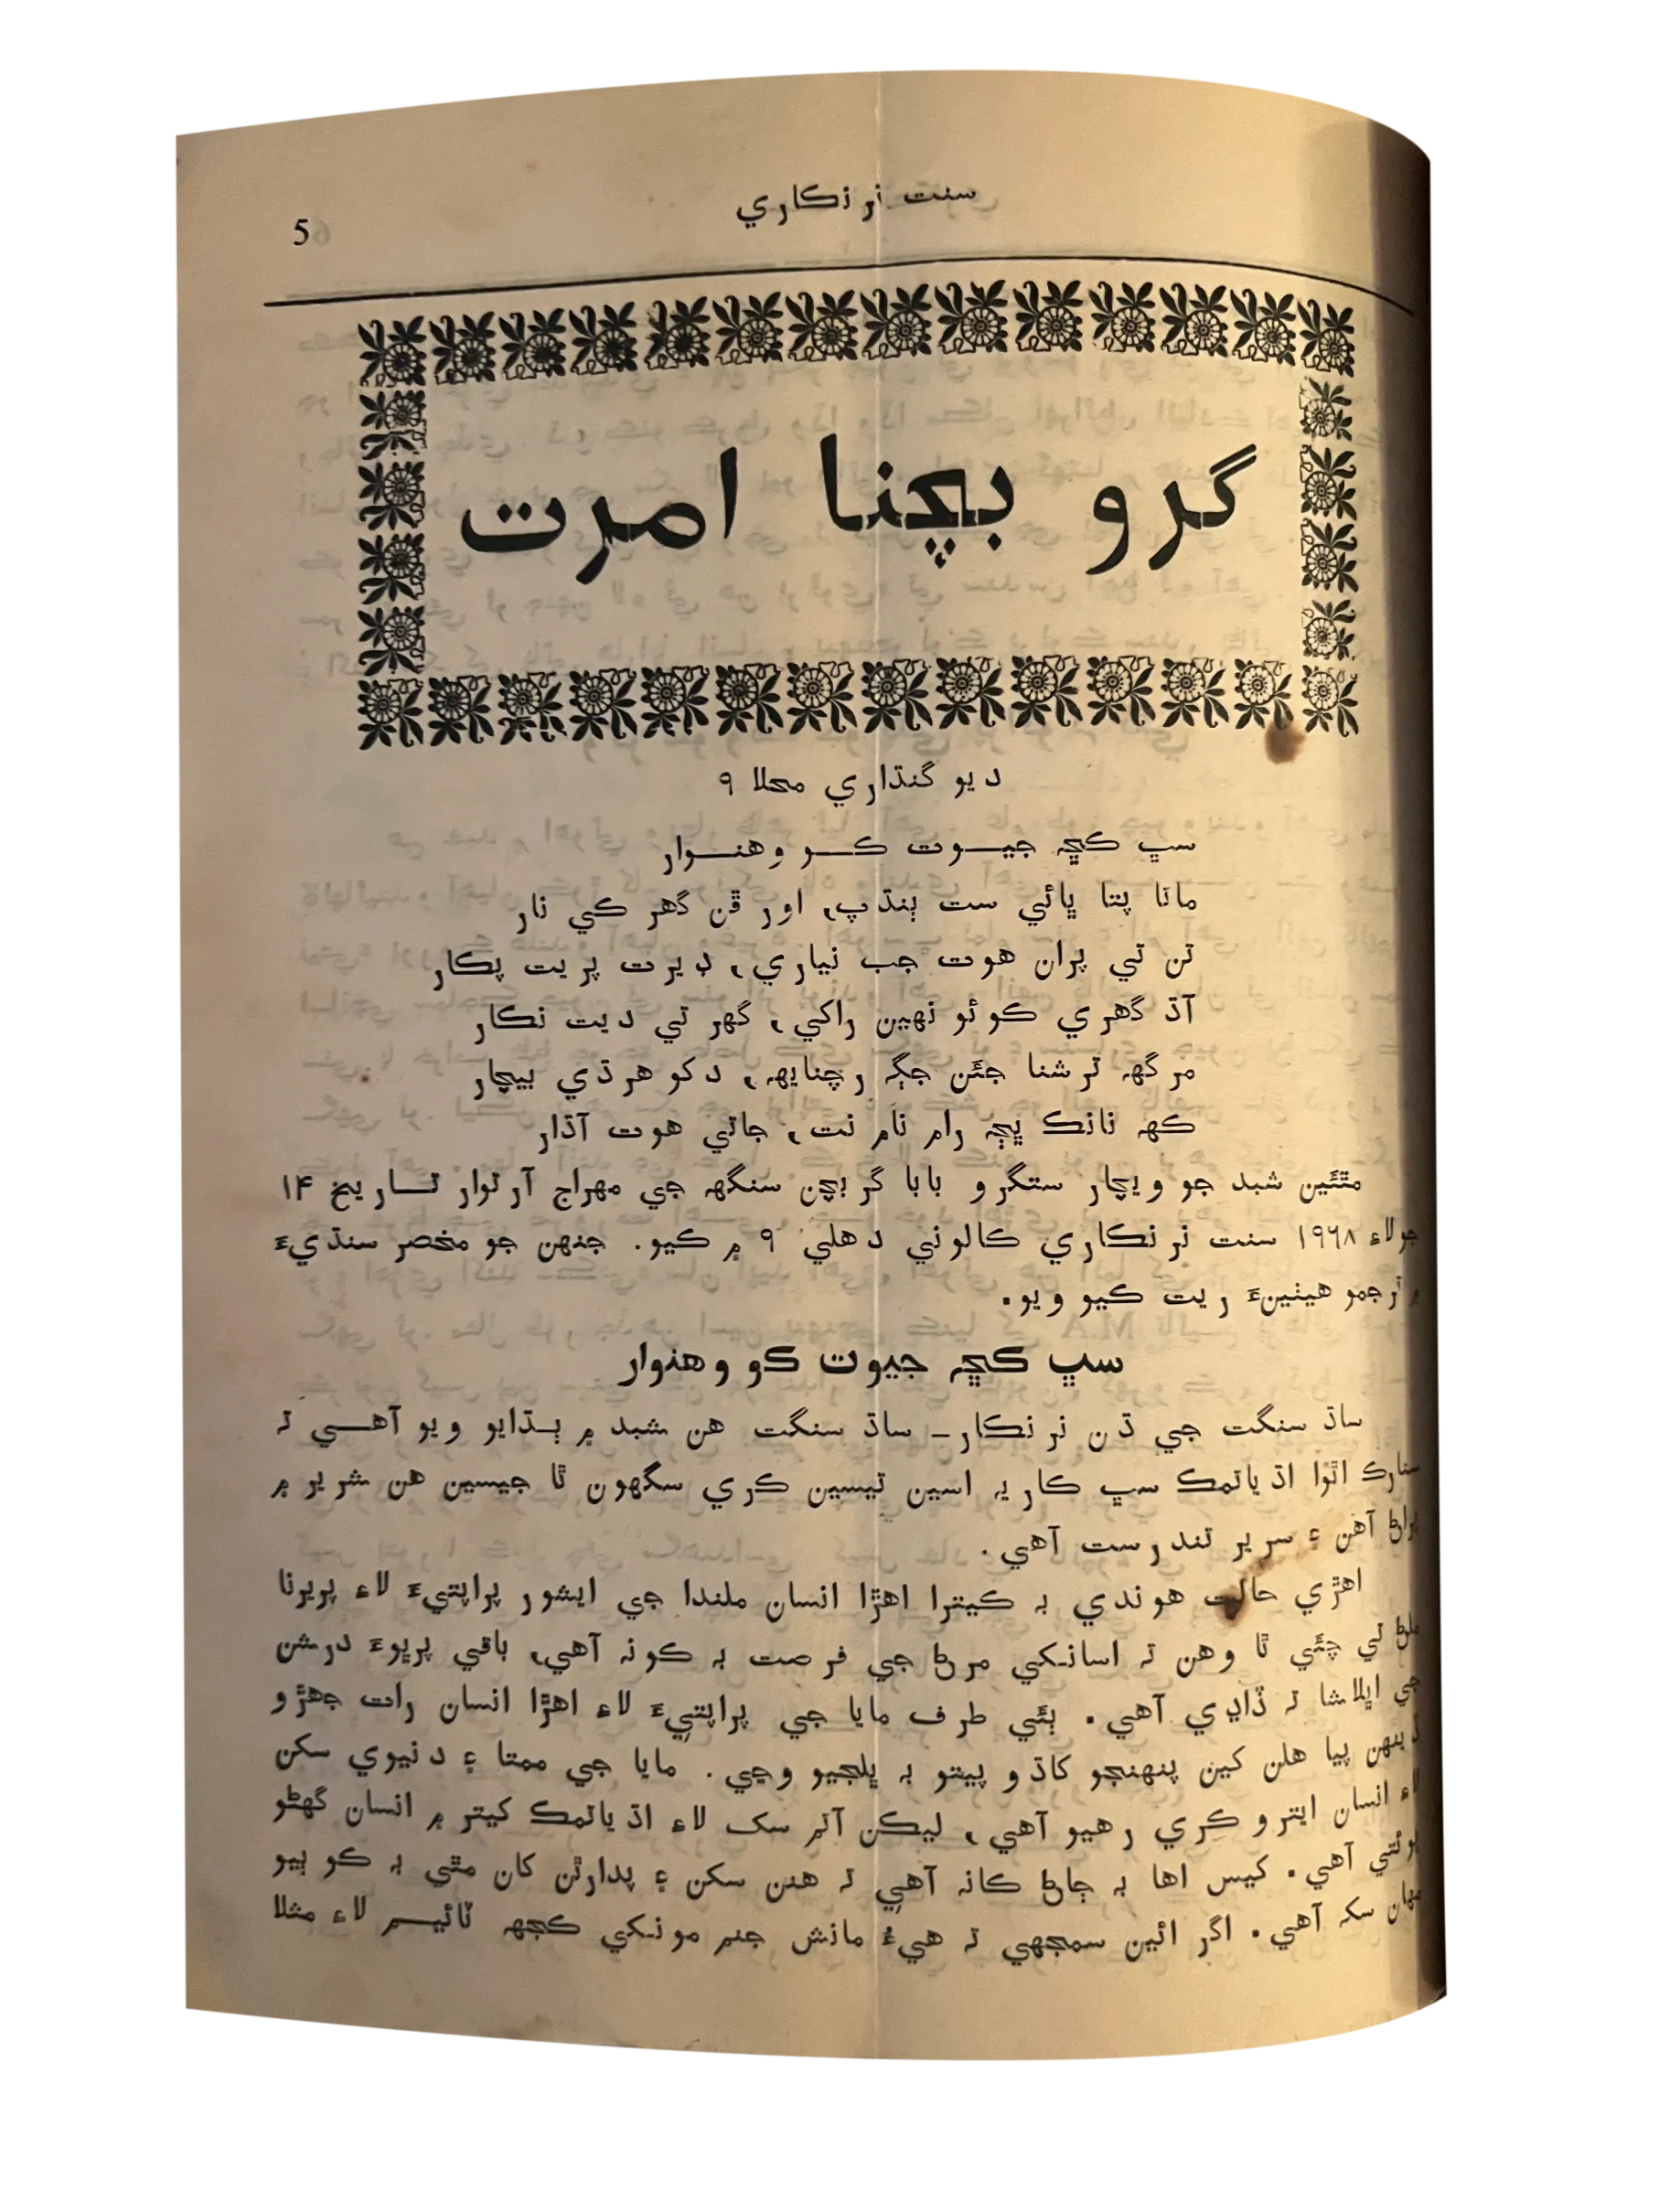 سنت نرنڪاري
5
گرو بچنا امرت
ديو گنڌاري محلا ٩
سڀ ڪڇہ جيوت ڪو وهنوار
ماتا پتا ڀائي ست ٻنڌپ، اور ڦن گهر ڪي نار
تن تي پران هوت جب نياري، ٽيرت پريت پڪار
آڌ گهڙي ڪوئو نهين راکي، گهر تي ديت نڪار
مرگهہ ترشنا جئن جڳہ رچنايهہ، دکو هرڌي بيچار
ڪهہ نانڪ ڀڄہ رام نام نت، جاتي هوت آڌار
مٿئين شبد جو ويچار ستگرو بابا گربچن سنگهہ جي مهراج آرتوار تاريخ ١۴
جولاءِ ١٩٦٨ سنت نرنڪاري ڪالوني دهلي ٩ ۾ ڪيو. جنهن جو مختصر سنڌيءَ
۾ ترجمو هيٺينءَ ريت ڪيو ويو.
سڀ ڪڇہ جيوت ڪو وهنوار
ساڌ سنگت جي ڌن نرنڪار_ ساڌ سنگت هن شبد ۾ ٻڌايو ويو آهي تہ
اٿوا اڌياتمڪ سڀ ڪاريہ اسين تيسين ڪري سگهون ٿا جيسين هن شرير ۾
پراڻ آهن ۽ سرير تندرست آهي.
اهڙي حالت هوندي بہ ڪيترا اهڙا انسان ملندا جي ايشور پراپتيءَ لاءِ پريرنا
ملڻ تي چئي ٿا وهن تہ اسانکي مرڻ جي فرصت بہ ڪونہ آهي، باقي پرڀوءَ درشن
جي اڀلاشا تہ ڏاڍي آهي. ٻئي طرف مايا جي پراپتيءَ لاءِ اهڙا انسان رات جهڙو
ڏينهن پيا هلن کين پنهنجو کاڌو پيتو بہ ڀلجيو وڃي. مايا جي ممتا ۽ دنيوي سکن
لاءِ انسان ايترو ڪري رهيو آهي، ليڪن آتم سک لاءِ اڌياتمڪ کيتر ۾ انسان گهڻو
پوئتي آهي. کيس اها بہ ڄاڻ ڪانہ آهي تہ هنن سکن ۽ پدارٿن کان مٿي بہ ڪو ٻيو
مهان سکہ آهي. اگر ائين سمجهي تہ هيءُ مانش جنم مونکي ڪجهہ ٽائيم لاءِ مثلا